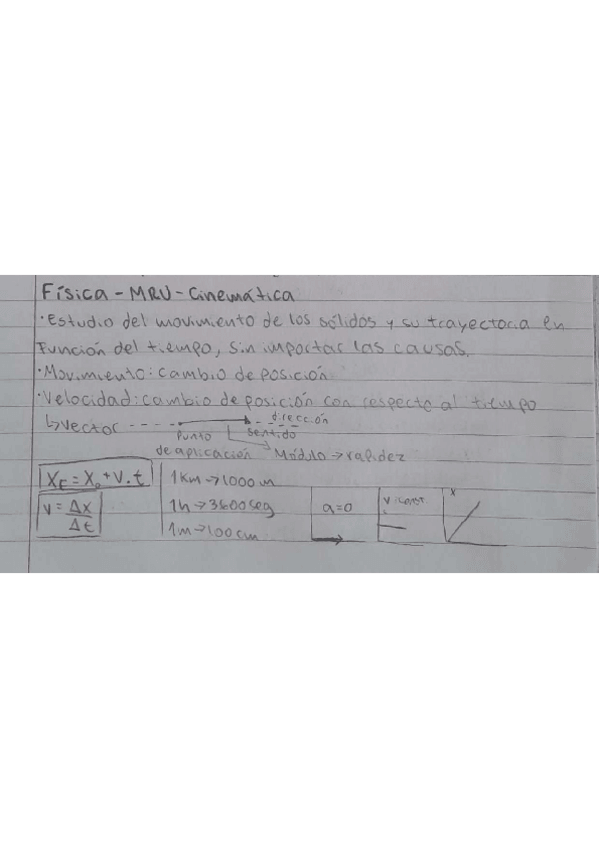 Física - MRU - Cinemática
• Estudio del movimiento de los sólidos y su trayectoria en
Función del tiempo, sin importar las causas.
• Movimiento: cambio de posición
• Velocidad: cambio de posición con respecto al tiempo
↳ vector dirección
Punto sentido
de aplicación Módulo → rapidez
XF = X0 + V.t 1Km → 1000 m
V = Δx/Δt 1h → 3600 seg a=0 V const. x
1m → 100 cm